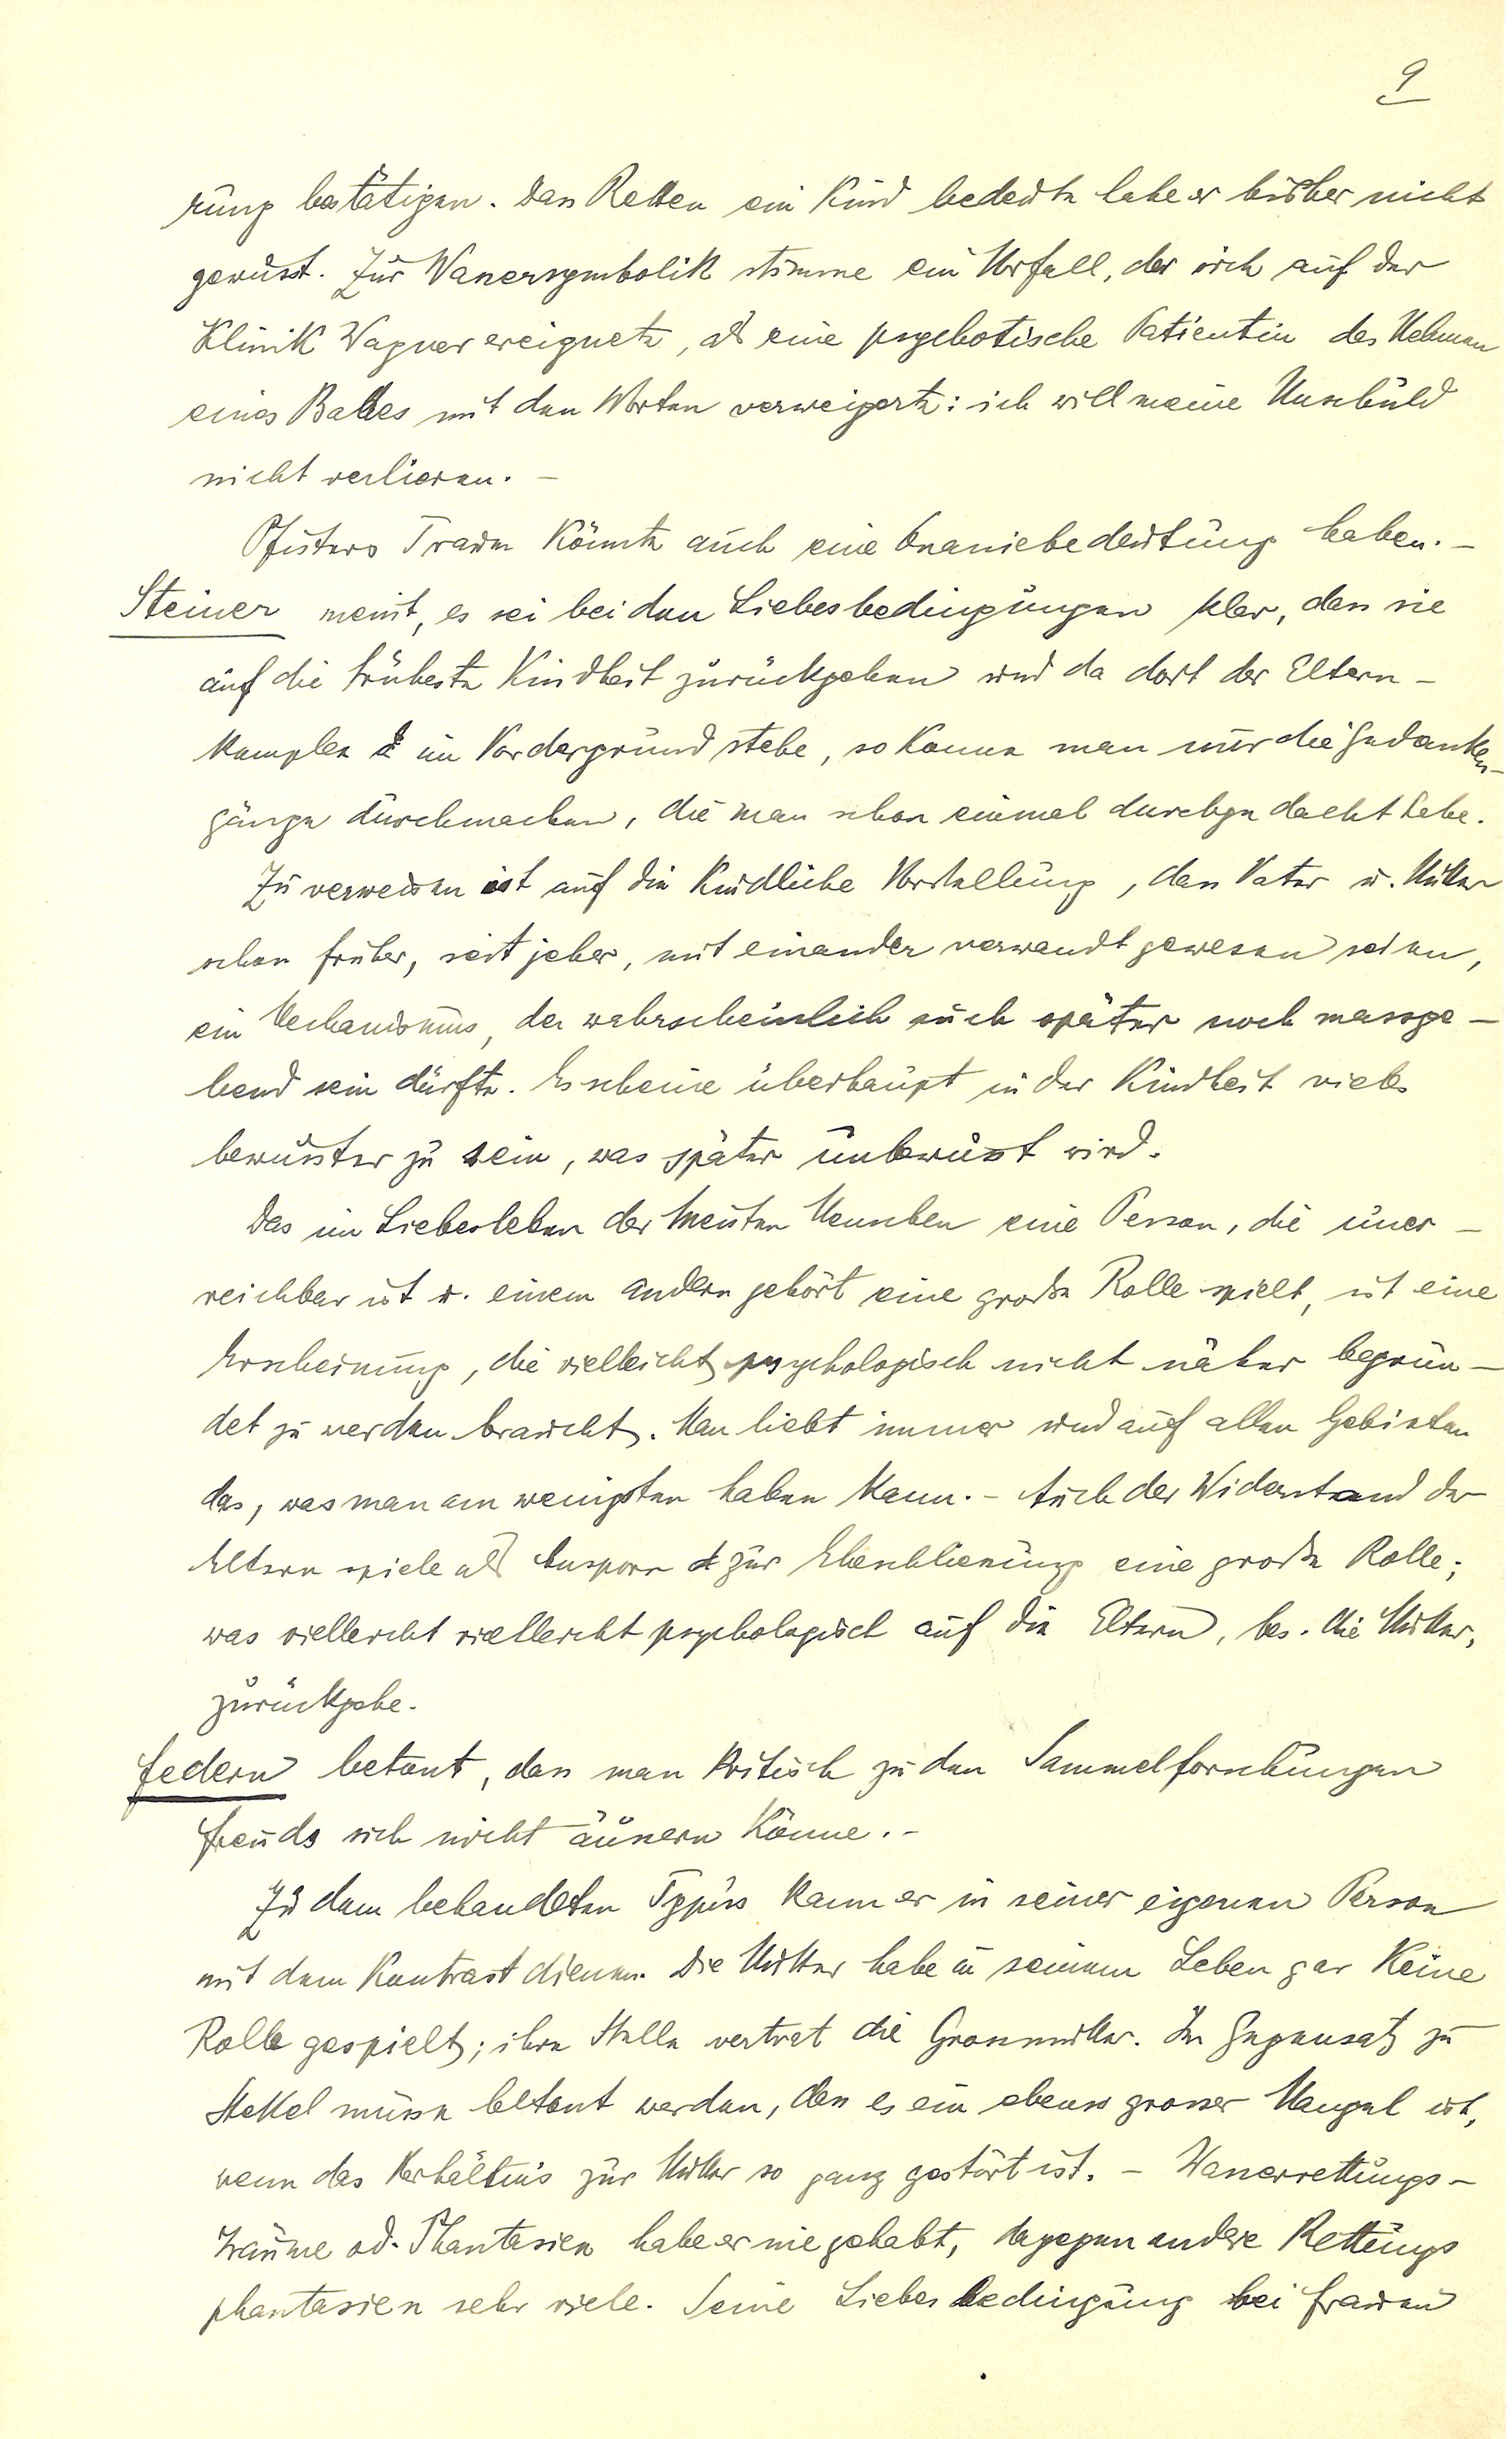 9
rung bestätigen. Dass Retten ein Kind bedeute habe er bisher nicht
gewusst. Zur Wassersymbolik stimme ein Vorfall, der sich auf der
Klinik Wagner ereignete, als eine psychotische Patientin das Nehmen
eines Bades mit den Worten verweigerte: ich will meine Unschuld
nicht verlieren. –
Pfisters Traum könnte auch eine Onaniebedeutung haben. –
Steiner meint, es sei bei den Liebesbedingungen klar, dass sie
auf die früheste Kindheit zurückgehen und da dort der Eltern-
komplex im Vordergrund stehe, so könne man nur die Gedanken-
gänge durchmachen, die man schon einmal durchgedacht habe.
Zu verweisen ist auf die kindliche Vorstellung, dass Vater u. Mutter
schon früher, seit jeher, mit einander verwandt gewesen seien,
ein Mechanismus, der wahrscheinlich auch später noch massge-
bend sein dürfte. Es scheine überhaupt in der Kindheit vieles
bewusster zu sein, was später unbewusst wird.
Das im Liebesleben der meisten Menschen eine Person, die uner-
reichbar ist u. einem andern gehört eine große Rolle spielt, ist eine
Erscheinung, die vielleicht psychologisch nicht näher begrün-
det zu werden braucht. Man liebt immer und auf allen Gebieten
das, was man am wenigsten haben kann. – Auch der Widerstand der
Eltern spiele als Ansporn zur Eheschliessung eine große Rolle;
was vielleicht vielleicht psychologisch auf die Eltern, bes. die Mutter,
zurückgehe.
Federn betont, dass man kritisch zu den Sammelforschungen
Freuds sich nicht äussern könne. –
Zu dem behandelten Typus kann er in seiner eigenen Person
mit dem Kontrast dienen. Die Mutter habe in seinem Leben gar keine
Rolle gespielt; ihre Stelle vertrat die Grossmutter. Im Gegensatz zu
Stekel müsse betont werden, dass es ein ebenso grosser Mangel ist,
wenn das Verhältnis zur Mutter so ganz gestört ist. – Wasserrettungs-
träume od. Phantasien habe er nie gehabt, dagegen andere Rettungs
phantasien sehr viele. Seine Liebesbedingung bei Frauen